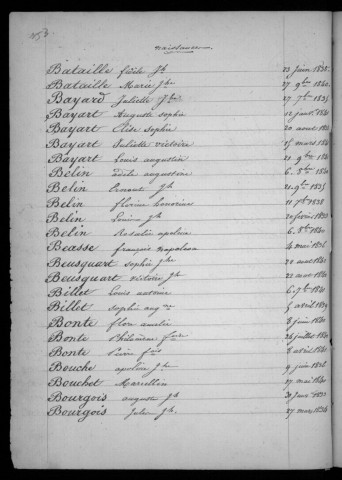 naissances
Bataille Jh 23 juin 1838
Bataille Marie Jhe 27 9bre 1840
Bayard Juliette Jhne 27 7bre 1835
Bayart Auguste sophie 12 janvr 1840
Bayart Elise Sophie 20 aout
Bayart Juliette victoire 15 mars
Bayart Louis augustin 21 9bre
Belin adèle augustine 6. 8bre 1840
Belin Ernest Jh 21. 9bre 1835
Belin florine honorine 11 1838
Belin Louise Jh 20 fevrier
Belin Rosalie apoline 6. 8bre 1840
Beasse françois napoleon 4 mai 1836
Beusquart sophie Jhe 20 aout 1840
Beusquart victoire Jh 22 aout 1840
Billet Louis antoine 6 1840
Billet sophie 5 avril 1839
Bonte flore amelie 8 juin 1840
Bonte Philomene 26 juillet 1840
Bonte Pierre fois 8 avril 1840
Bouche apoline Jhe 9 juin 1836
Bouchet Marcellin 27 mai 1840
Bourgois auguste Jh 20 Janr 1833
Bourgois Jules Jh 27 mars 1836